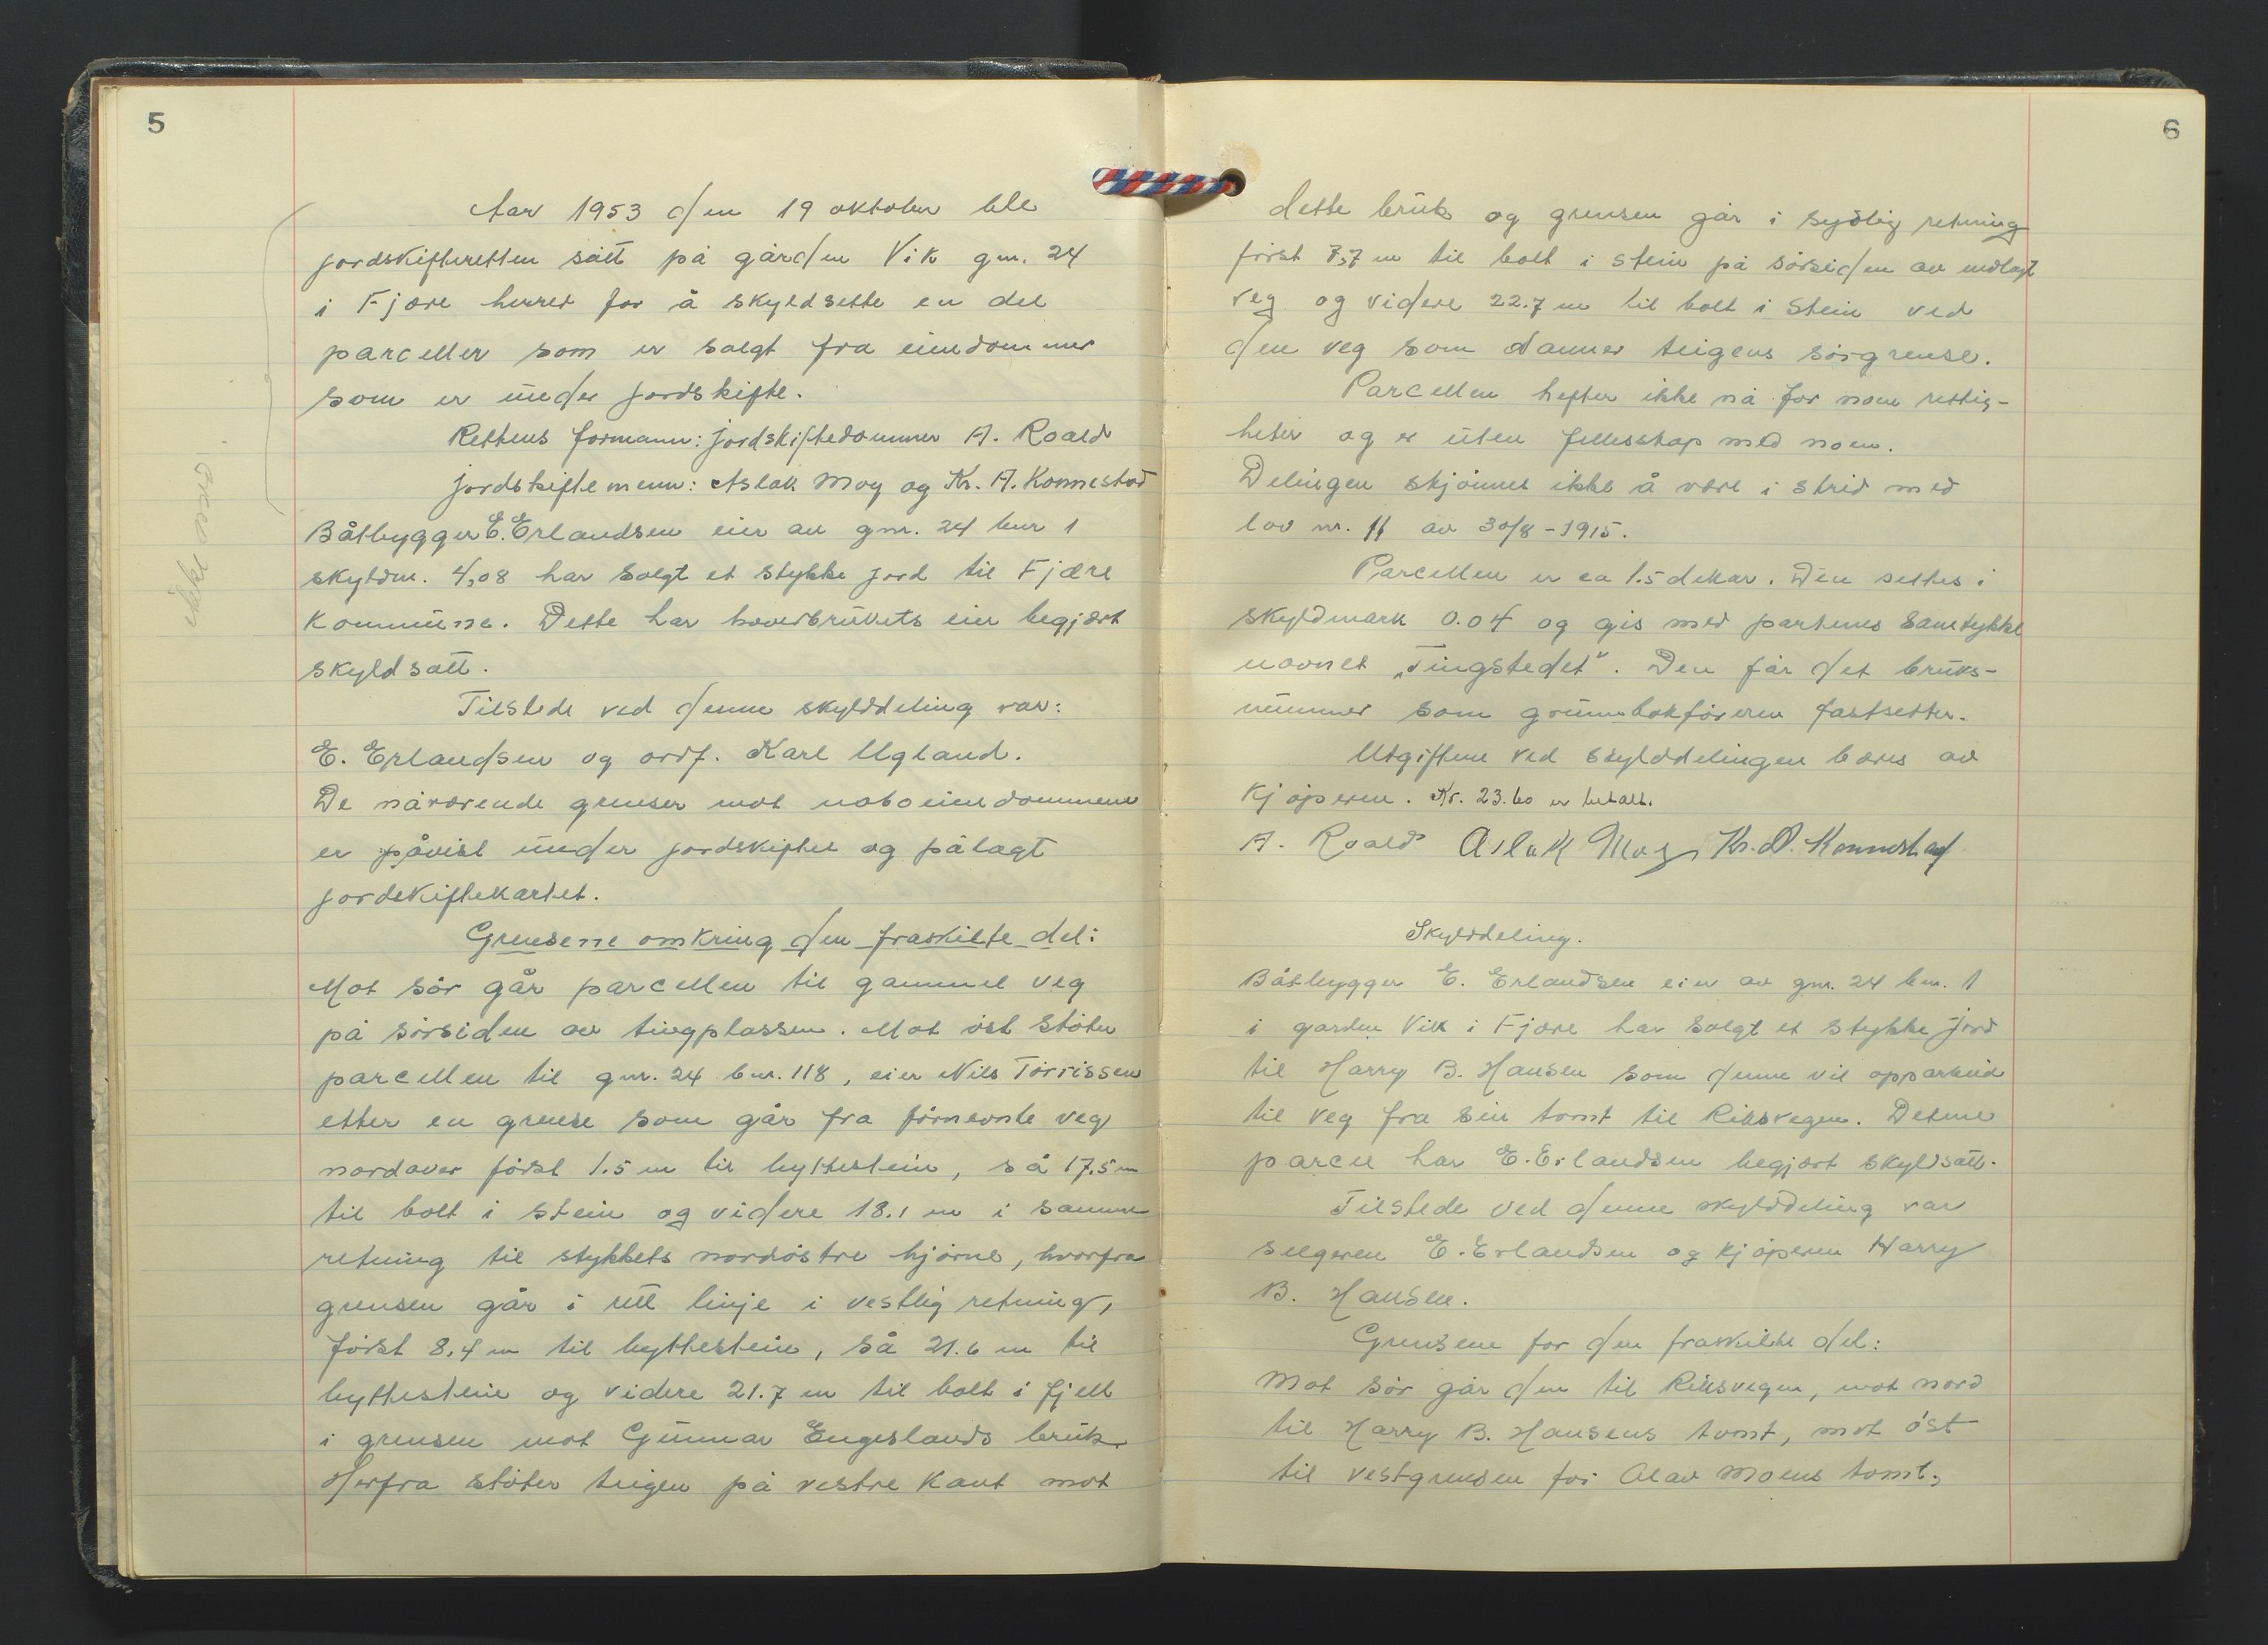 5
Aar 1953 den 19 oktober ble
jordskifteretten satt på gården Vik gnr. 24
i Fjære herred for å skyldsette en del
parceller som er solgt fra eiendommer
som er under jordskifte.
Rettens formann: jordskiftedommer A. Roald
jordskiftemenn: Aslak Moy og Kr. A. Konnestad
Båtbygger E. Erlandsen eier av gnr. 24 bnr 1
skyldm. 4,08 har solgt et stykke jord til Fjære
Kommune. Dette har hovedbrukets eier begjært
skyldsatt.
Tilstede ved denne skylddeling var:
E. Erlandsen og ordf. Karl Ugland.
De nåværende grenser mot naboeiendommene
er påvist under jordskiftet og pålagt
jordskiftekartet.
Grensene omkring den fraskilte del:
Mot sør går parcellen til gammel veg
på sørsiden av tingplassen. Mot øst støter
parcellen til gnr. 24 bnr. 118, eier Nils Tørrissen
etter en grense som går fra førnevnte veg
nordover først 1.5 m til byttestein, så 17,5 m
til bolt i stein og videre 18.1 m i samme
retning til stykkets nordøstre hjørne, hvorfra
grensen går i rett linje i vestlig retning,
først 8,4 m til byttestein, så 21.6 m til
byttestein og videre 21.7 m til bolt i fjell
i grensen mot Gunnar Engeslands bruk.
Herfra støter teigen på vestre kant mot
ikke
6
dette bruk og grensen går i sydlig retning
først 7,7 m til bolt i stein på sørsiden av nedlagt
veg og videre 22.7 m til bolt i stein ved
den veg som danner teigens sørgrense.
Parcellen hefter ikke nå for noen rettig-
heter og er uten fellesskap med noen.
Delingen skjønnes ikke å være i strid med
lov nr. 11 av 30/8-1915.
Parcellen er ca 1.5 dekar. Den settes i
skyldmark 0.04 og gis med partenes samtykke
navnet „Tingstedet". Den får det bruks-
nummer som grunnbokføreren fastsetter.
Utgiftene ved skylddelingen bæres av
Kjøperen. Kr. 23.60 er betalt.
A. Roald Aslak Moy Kr. A. Konnestad
Skylddeling.
Båtbygger E. Erlandsen eier av gnr. 24 bnr. 1
i garden Vik i Fjære har solgt et stykke jord
til Harry B. Hansen som denne vil opparbeid
til veg fra sin tomt til Riksvegen. Denne
parcell har E. Erlandsen begjært skyldsatt.
Tilstede ved denne skylddeling var
selgeren E. Erlandsen og kjøperen Harry
B. Hansen.
Grensene for den fraskilte del:
Mot sør går den til Riksvegen, mot nord
til Harry B. Hansens tomt, mot øst
til vestgrensen for Olav Moens tomt,